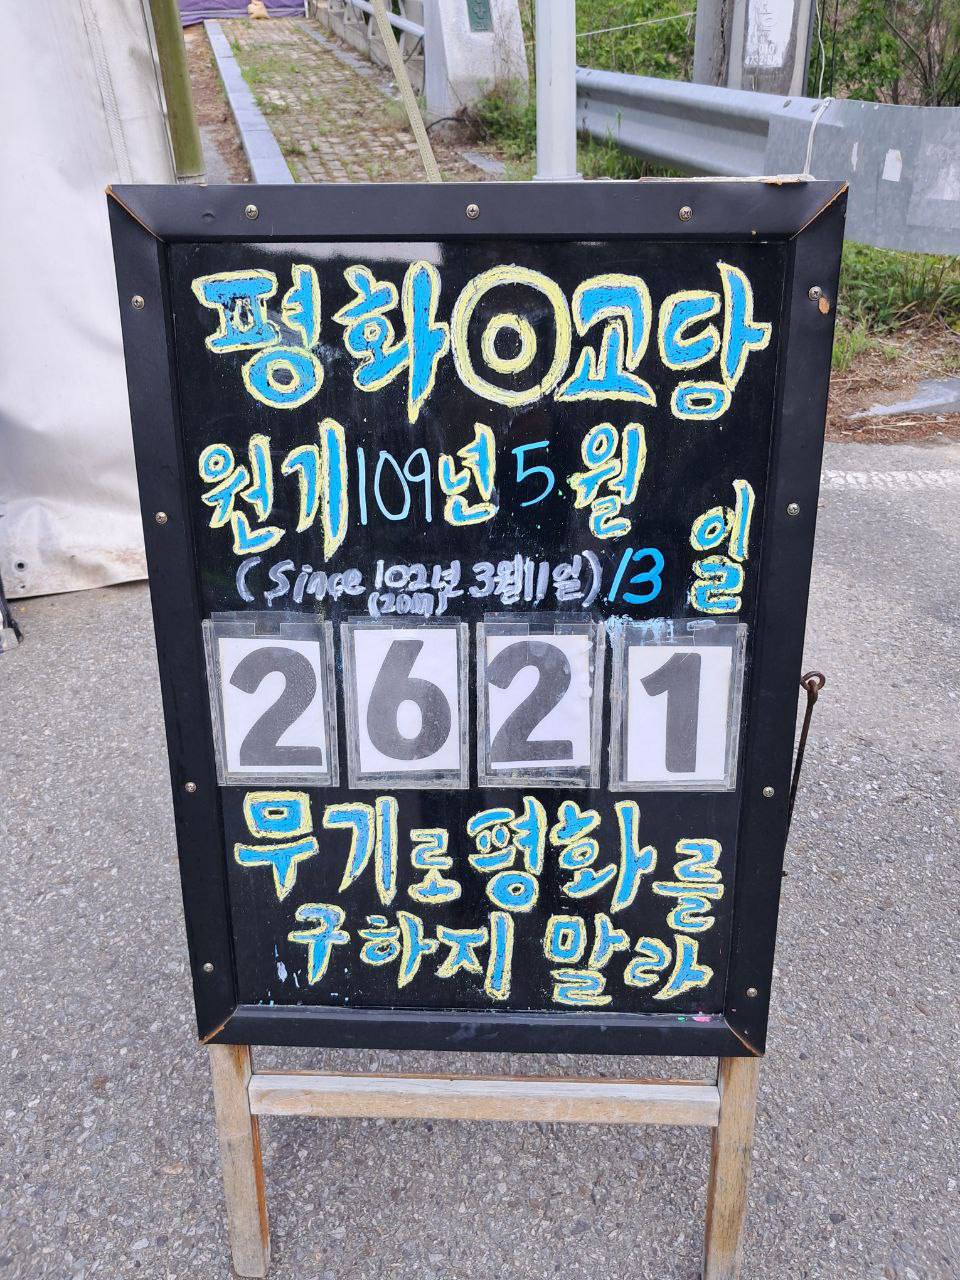 평화○교당
원기109년 5월 13일
(Since 102년 3월11일)
(2017)
2621
무기로 평화를
구하지 말라